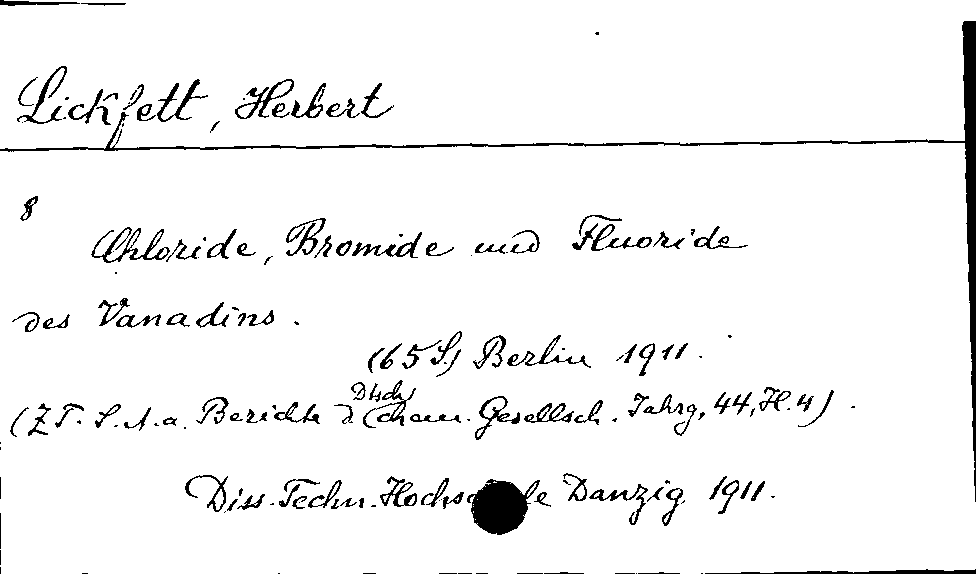 Lickfett, Herbert
8
Chloride, Bromide und Fluoride
des Vanadins.
(65 S.) Berlin 1911.
Dtsch
(Z T. S. A. a. Berichte d. chem. Gesellsch. Jahrg. 44, H. 4).
Diss. Techn. Hochschule Danzig 1911.